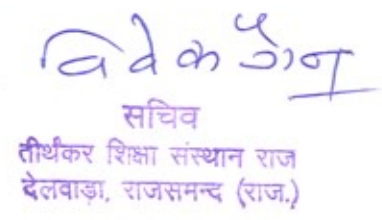 विवेक जैन
सचिव
तीर्थंकर शिक्षा संस्थान राज
देलवाड़ा, राजसमन्द (राज.)